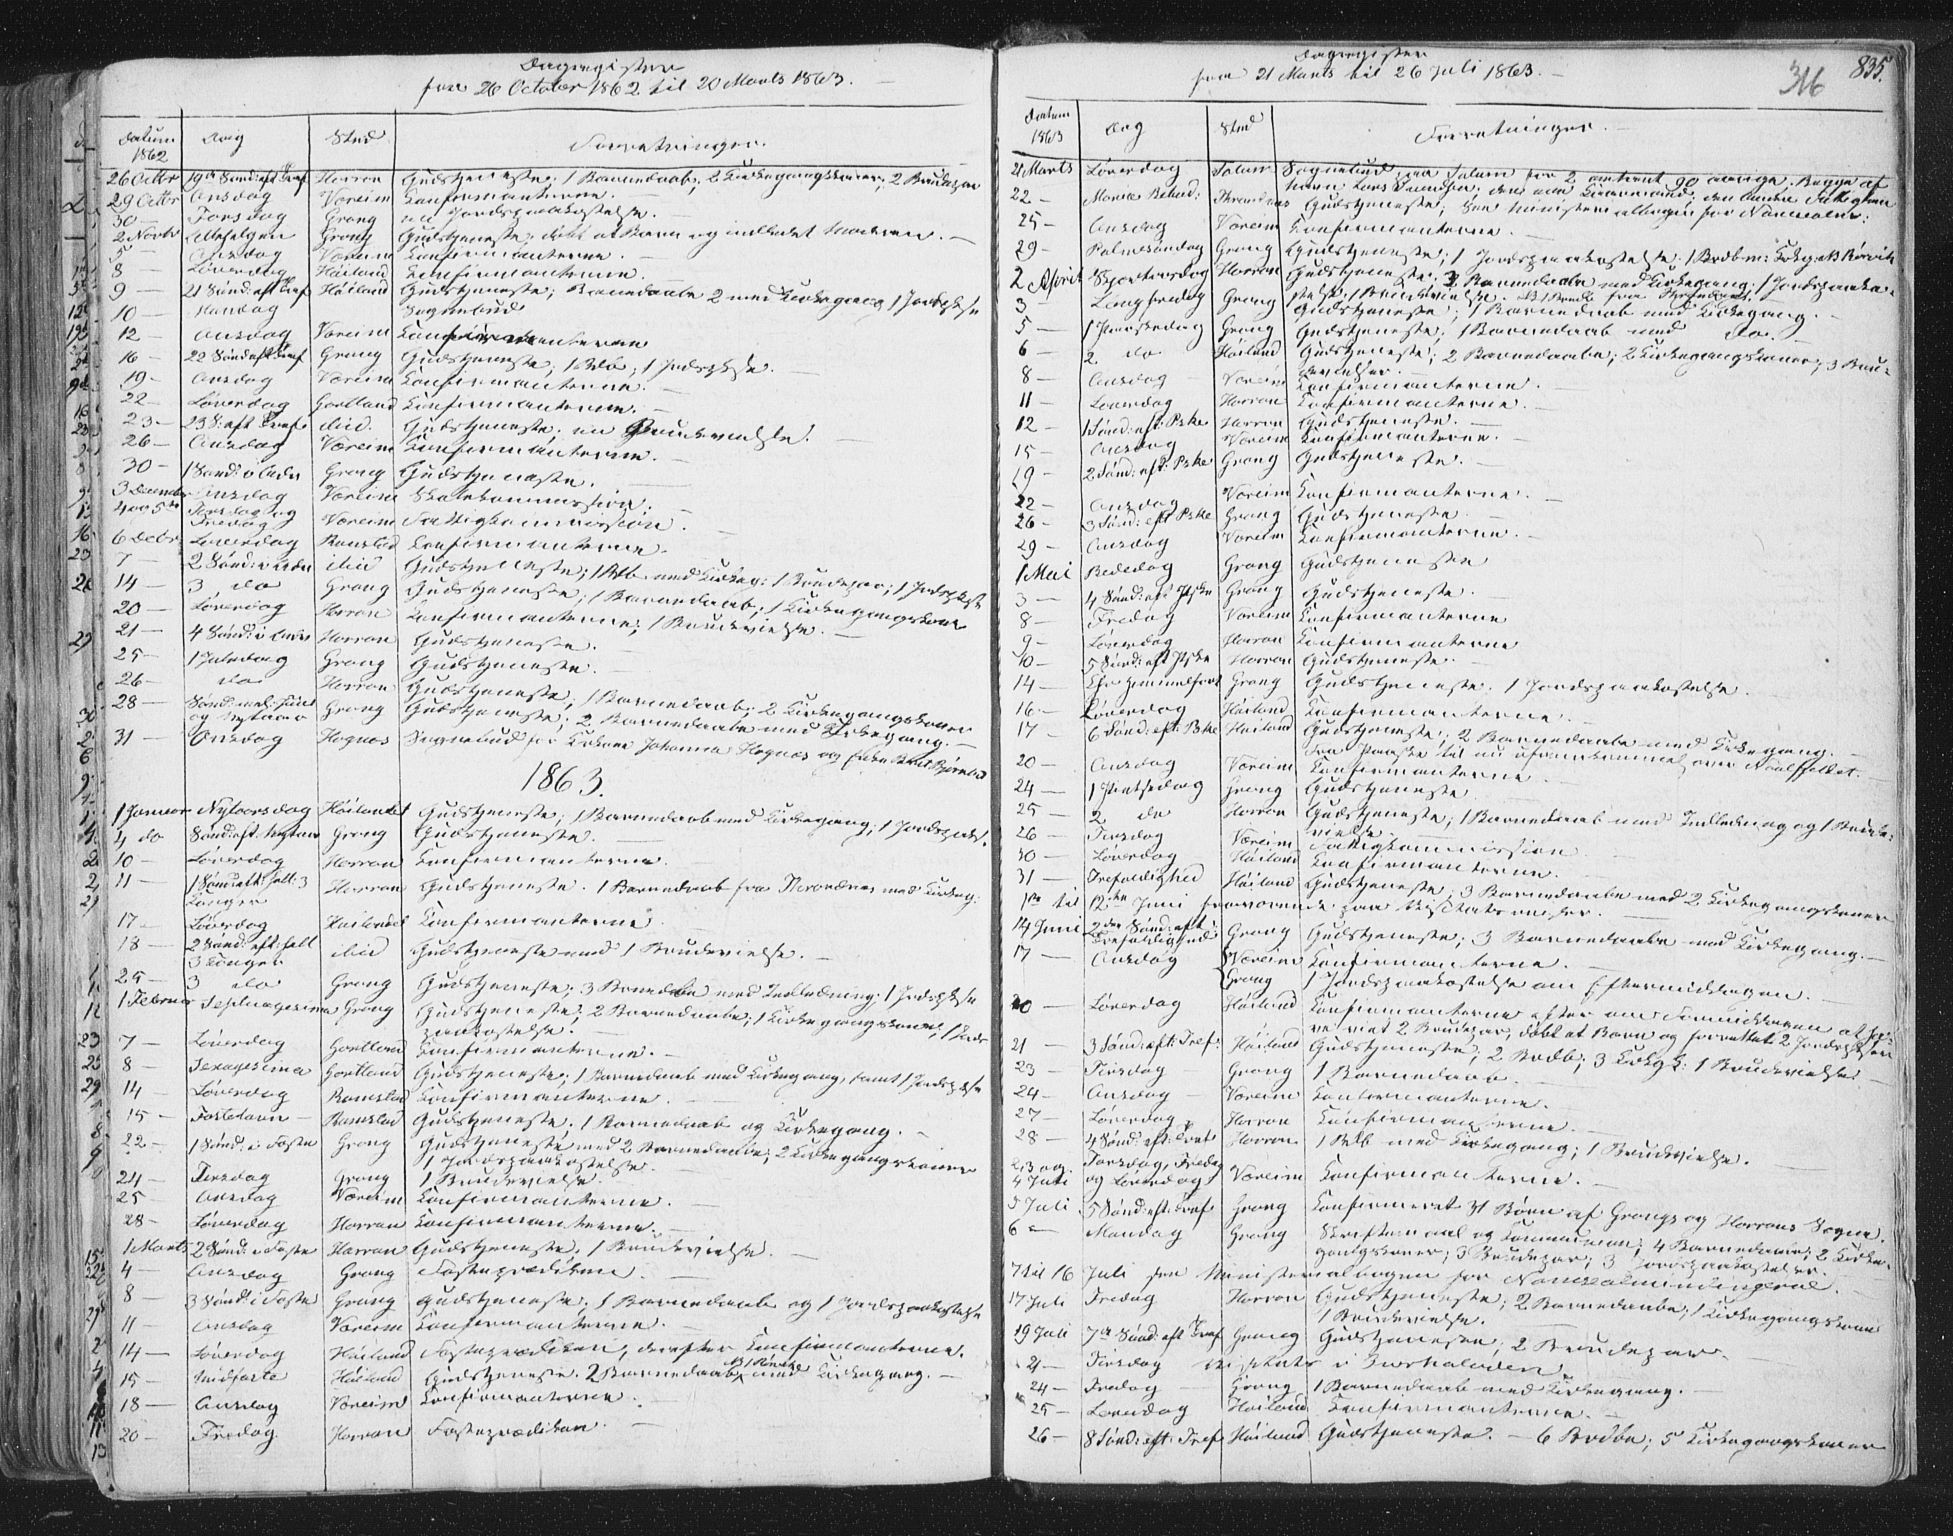 Dagregister
fra 26 October 1862 til 20 Marts 1863.
Datum 1862 Dag Sted Forretninger.
26 Octbr 19de Sønd: eft Tref Harran Gudstjeneste; 1 Barnedaab; 2 Kirkegangskoner; 2 Brudepar
29 Octbr Onsdag Væreim Konfirmanterne.
30 — Torsdag Grong en Jordspaakastelse.
2 Novbr Allehelgen Grong Gudstjeneste, døbt et Barn og indledet Moderen. —
5 — Onsdag Væreim Konfirmanterne. —
8 — Løverdag Høiland Konfirmanterne.
9 — 21 Sønd: eft Tref Høiland Gudstjeneste; Barnedaabe 2 med Kirkegang 1 Jordspkse
10 — Mandag Sognebud
12 — Onsdag Væreim Konfirmanterne
16 — 22 Sønd eft Tref Grong Gudstjeneste, 1 Bdb; 1 Jordspkse. —
19 — Onsdag Væreim Konfirmanterne. —
22 — Løverdag Gørtland Konfirmanterne. —
23 — 23 S: eft Tref: ibid. Gudstjeneste. en Brudevielse.
26 — Onsdag Væreim Konfirmanterne. —
30 — 1 Sønd: i Adv Grong Gudstjeneste. —
3 December Onsdag Væreim Skolekommission. —
4 og 5te Torsdag og Fredag Væreim Fattigkommission. —
6 Decbr Løverdag Ranstad Konfirmanterne. —
7 — 2 Sønd: i Adv ibid Gudstjeneste; 1 Bdb med Kirkeg: 1 Brudepar; 1 Jordspkse
14 — 3 do Grong Gudstjeneste; 1 Barnedaab; 1 Kirkegangskone
20 — Løverdag Harran Konfirmanterne; 1 Brudevielse. —
21 — 4 Sønd: i Adv Harran Gudstjeneste. —
25 — 1 Juledag Grong Gudstjeneste. —
26 — do Harran Gudstjeneste; 1 Barnedaab; 2 Kirkegangskoner
28 — Sønd: mel: Juul og Nytaar Grong Gudstjeneste; 2 Barnedaabe med Kirkegang. —
31 — Onsdag Hognæs Sognebud for Johanna Hognæs og
1863.
1 Januar Nytaarsdag Høilandet Gudstjeneste; 1 Barnedaab med Kirkegang; 1 Jordspaks.
4 do Sønd: eft Nytaar Grong Gudstjeneste. —
10 — Løverdag Harran Konfirmanterne. —
11 — 1 Sønd eft: hell: 3 Konger Harran Gudstjeneste. 1 Barnedaab fra med Kirkeg:
17 — Løverdag Høilandet Konfirmanterne. —
18 — 2 Sønd: eft: hell 3 Konger ibid Gudstjeneste med 1 Brudevielse. —
25 — 3 do Grong Gudstjeneste; 3 Barnedabe med Indledning; 1 Jordspkse
1 Februar Septuagesima Grong Gudstjeneste; 2 Barnedaabe; 1 Kirkegangskone; 1 Jords
paakastelse. —
7 — Løverdag Gørtland Konfirmanterne. —
8 — Sexagesima Gørtland Gudstjeneste; 1 Barnedaab med Kirkegang, samt 1 Jordspkse
14 — Løverdag Ranstad Konfirmanterne. —
15 — Fastelavn — Ranstad Gudstjeneste. 1 Barnedaab og Kirkegang. —
22 — 1 Sønd: i Faste Grong Gudstjeneste med 2 Barnedaabe; 2 Kirkegangskoner
1 Jordspaakastelse.
24 — Tirsdag Grong 1 Brudevielse. —
25 — Onsdag Væreim Konfirmanterne. —
28 — Løverdag Harran Konfirmanterne. —
1 Marts 2 Sønd: i Faste Harran Gudstjeneste. 1 Brudevielse. —
4 — Onsdag Grong Fasteprædiken. —
8 — 3 Sønd: i Faste Grong Gudstjeneste. 1 Barnedaab og 1 Jordspaakastelse
11 — Onsdag Væreim Konfirmanterne. —
14 — Løverdag Høiland Fasteprædiken, derefter Konfirmanterne.
15 — Midfaste Høiland Gudstjeneste. 2 Barnedaab med Kirkegang. —
18 — Onsdag Væreim Konfirmanterne. —
20 — Fredag Harran Fasteprædiken. —
Dagregister
fra 21 Marts til 26 Juli 1863. —
316
835.
Datum 1863 Dag Sted Forretninger. —
21 Marts Løverdag Solum Sognebud paa Solum for 2 omtrent 90 aarige. Begge af
Navn Lars Svendsen; den ene den anden
22 — Mariæ Bebud: Gudstjeneste; see Ministerialbogen for
25 — Onsdag Væreim Konfirmanterne. —
29 — Palmesøndag Grong Gudstjeneste; 1 Jordspaakastelse. 1
2 April Skjærtorsdag Harran Gudstjeneste. 3 Barnedaabe med Kirkegang; 1 Jordspaaka-
stelse; 1 Brudevielse.
3 — Langfredag Grong Gudstjeneste; 1 Barnedaab med Kirkegang. —
5 — 1 Paaskedag Grong Gudstjeneste; 1 Barnedaab med do. —
6 — 2 do Høiland Gudstjeneste; 2 Barnedaabe; 2 Kirkegangskoner; 3 Bru-
devielser. —
8 — Onsdag Væreim Konfirmanterne. —
11 — Løverdag Harran Konfirmanterne. —
12 — 1 Sønd: eft: Pske Harran Gudstjeneste. —
15 — Onsdag Væreim Konfirmanterne. —
19 — 2 Sønd: eft: Pske Grong Gudstjeneste. —
22 — Onsdag Væreim Konfirmanterne. —
26 — 3 Sønd: eft Pske Grong Gudstjeneste. —
29 — Onsdag Væreim Konfirmanterne. —
1 Mai Bededag Grong Gudstjeneste
3 — 4 Sønd: eft Pske Grong Gudstjeneste. —
8 — Fredag Væreim Konfirmanterne
9 — Løverdag Harran Konfirmanterne
10 — 5 Sønd: eft Pske Harran Gudstjeneste. —
14 — Chr Himmelfart Grong Gudstjeneste. 1 Jordspaakastelse. —
16 — Løverdag Høiland Konfirmanterne. —
17 — 6 Sønd: eft: Pske Høiland Gudstjeneste; 2 Barnedaabe med Kirkegang. —
fra Paaske til nu ufremkommel over —
20 — Onsdag Væreim Konfirmanterne. —
24 — 1 Pintsedag Grong Gudstjeneste
25 — 2 do Harran Gudstjeneste; 1 Barnedaab med Indledning og 1 Brude-
vielse. —
26 — Tirsdag Væreim Fattigkommission
30 — Løverdag Høiland Konfirmanterne. —
31 — Trefoldighed Høiland Gudstjeneste; 3 Barnedaabe med 2 Kirkegangskoner
1ste til 12te Juni fraværende paa Visitatsreiser. —
14 Juni 2den Sønd: eft Trefoldighed Grong Gudstjeneste; 3 Barnedaabe med Kirkegang. —
17 — Onsdag Væreim Konfirmanterne. —
Grong 1 Jordspaakastelse om Eftermiddagen. —
20 — Løverdag Høiland Konfirmanterne efter om Formiddagen at ha-
ve viet 2 Brudepar, døbt et Barn og forrettet 2 Jordspkser
21 — 3 Sønd: eft: Tref: Høiland Gudstjeneste; 2 Bdb; 3 Kirkgk: 1 Brudevielse. —
23 — Tirsdag Grong 1 Barnedaab. —
24 — Onsdag Væreim Konfirmanterne. —
27 — Løverdag Harran Konfirmanterne. —
28 — 4 Sønd: eft: Tref Harran 1 Bdb med Kirkegang; 1 Brudevielse. —
2, 3 og 4 Juli Torsdag, Fredag og Løverdag Væreim Konfirmanterne. —
5 Juli 5 Sønd: eft: Tref Grong Konfirmeret 31 Børn af Grongs og Harrans Sogne.
6 — Mandag Grong Skriftemaal og Kommunion; 4 Barnedaabe; 2 Kirke-
gangskoner; 3 Brudepar; 3 Jordspaakastelser.
7 til 16 Juli see Ministerialbogen for
17 Juli Fredag Harran Gudstjeneste; 2 Barnedaabe; 1 Kirkegangskone
1 Brudevielse. —
19 Juli 7de Sønd: eft Tref Grong Gudstjeneste; 2 Brudepar. —
21 — Tirsdag Visitats i
24 — Fredag Grong 1 Barnedaab med Kirkegang. —
25 — Løverdag Høiland Konfirmanterne. —
26 — 8 Sønd: eft: Tref Høiland Gudstjeneste. — 6 Bdbe; 5 Kirkegangskoner